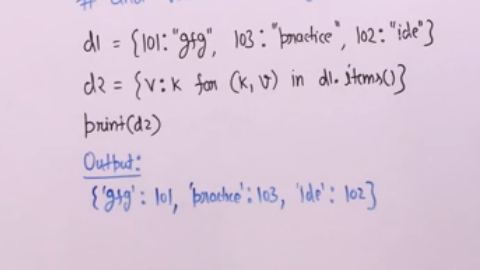 # and
d1 = {101:"gfg", 103:"practice", 102:"ide"}
d2 = {v:k for (k, v) in d1.items()}
print(d2)
Output:
{'gfg': 101, 'practice': 103, 'ide': 102}